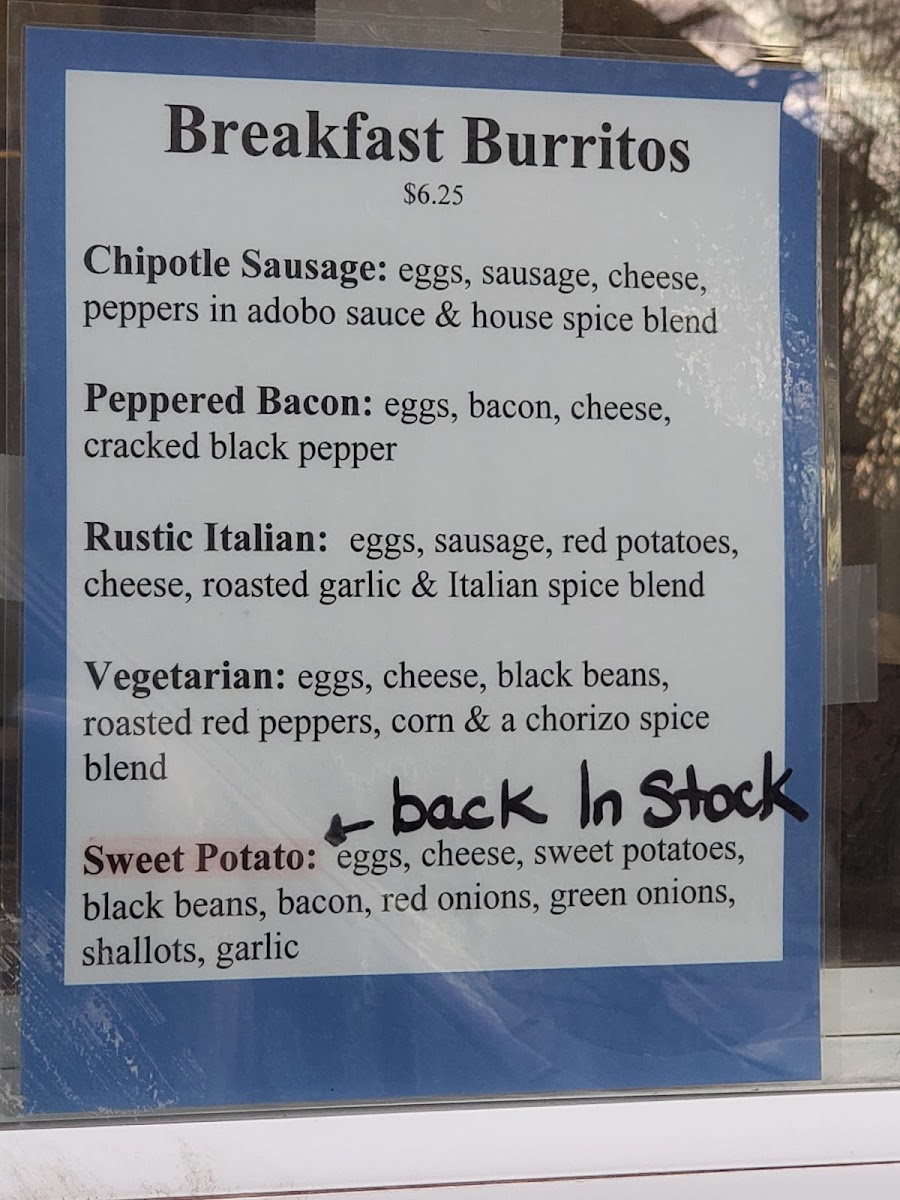 Breakfast Burritos
$6.25
Chipotle Sausage: eggs, sausage, cheese,
peppers in adobo sauce & house spice blend
Peppered Bacon: eggs, bacon, cheese,
cracked black pepper
Rustic Italian: eggs, sausage, red potatoes,
cheese, roasted garlic & Italian spice blend
Vegetarian: eggs, cheese, black beans,
roasted red peppers, corn & a chorizo spice
blend
back In Stock
Sweet Potato: eggs, cheese, sweet potatoes,
black beans, bacon, red onions, green onions,
shallots, garlic